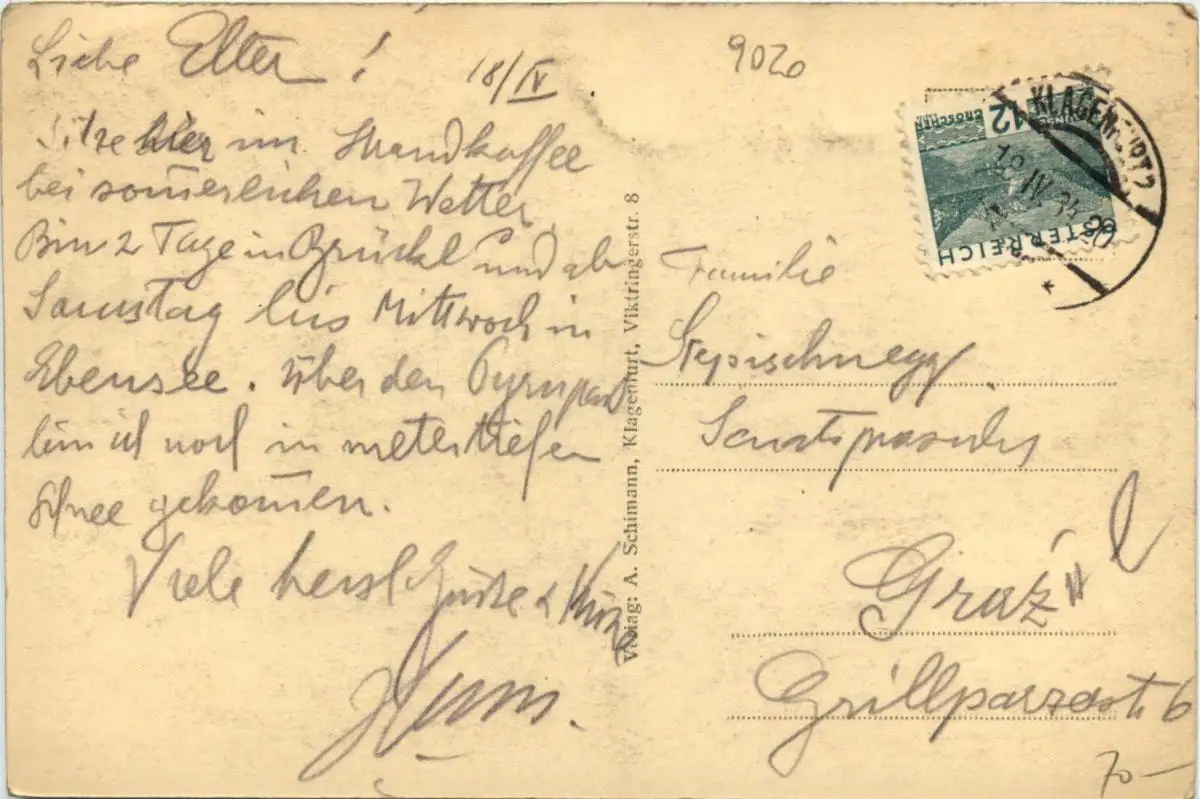 Liebe Elter !
18/IV
Sitze hier im Strandkaffee
bei som̄erlichen Wetter
Bin 2 Tage in Brückl und ab
Samstag bis Mittwoch in
Ebensee. Über den Pyrnpass
bin ich noch in metertiefen
Schnee gekom̄en.
Viele herzl Grüsse & Küsse
Verlag: A. Schimann, Klagenfurt, Viktringerstr. 8
9020
12
GROSCHEN
ÖSTERREICH
KLAGENFURT 2
18. IV. 34
Familie
Stepischnegg
Graz
Grillparzerstr. 6
70—